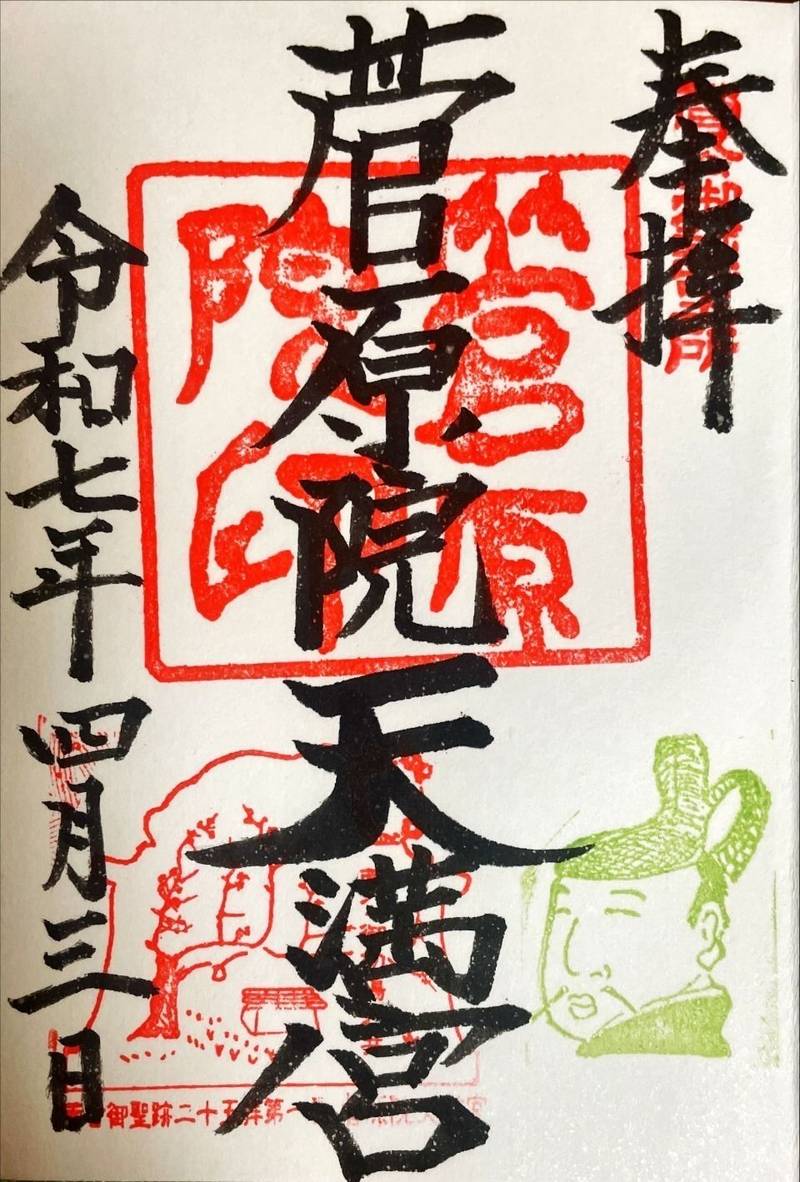 奉拝
菅原院天満宮
令和七年四月三日
菅原院印
御聖跡二十五拝第一